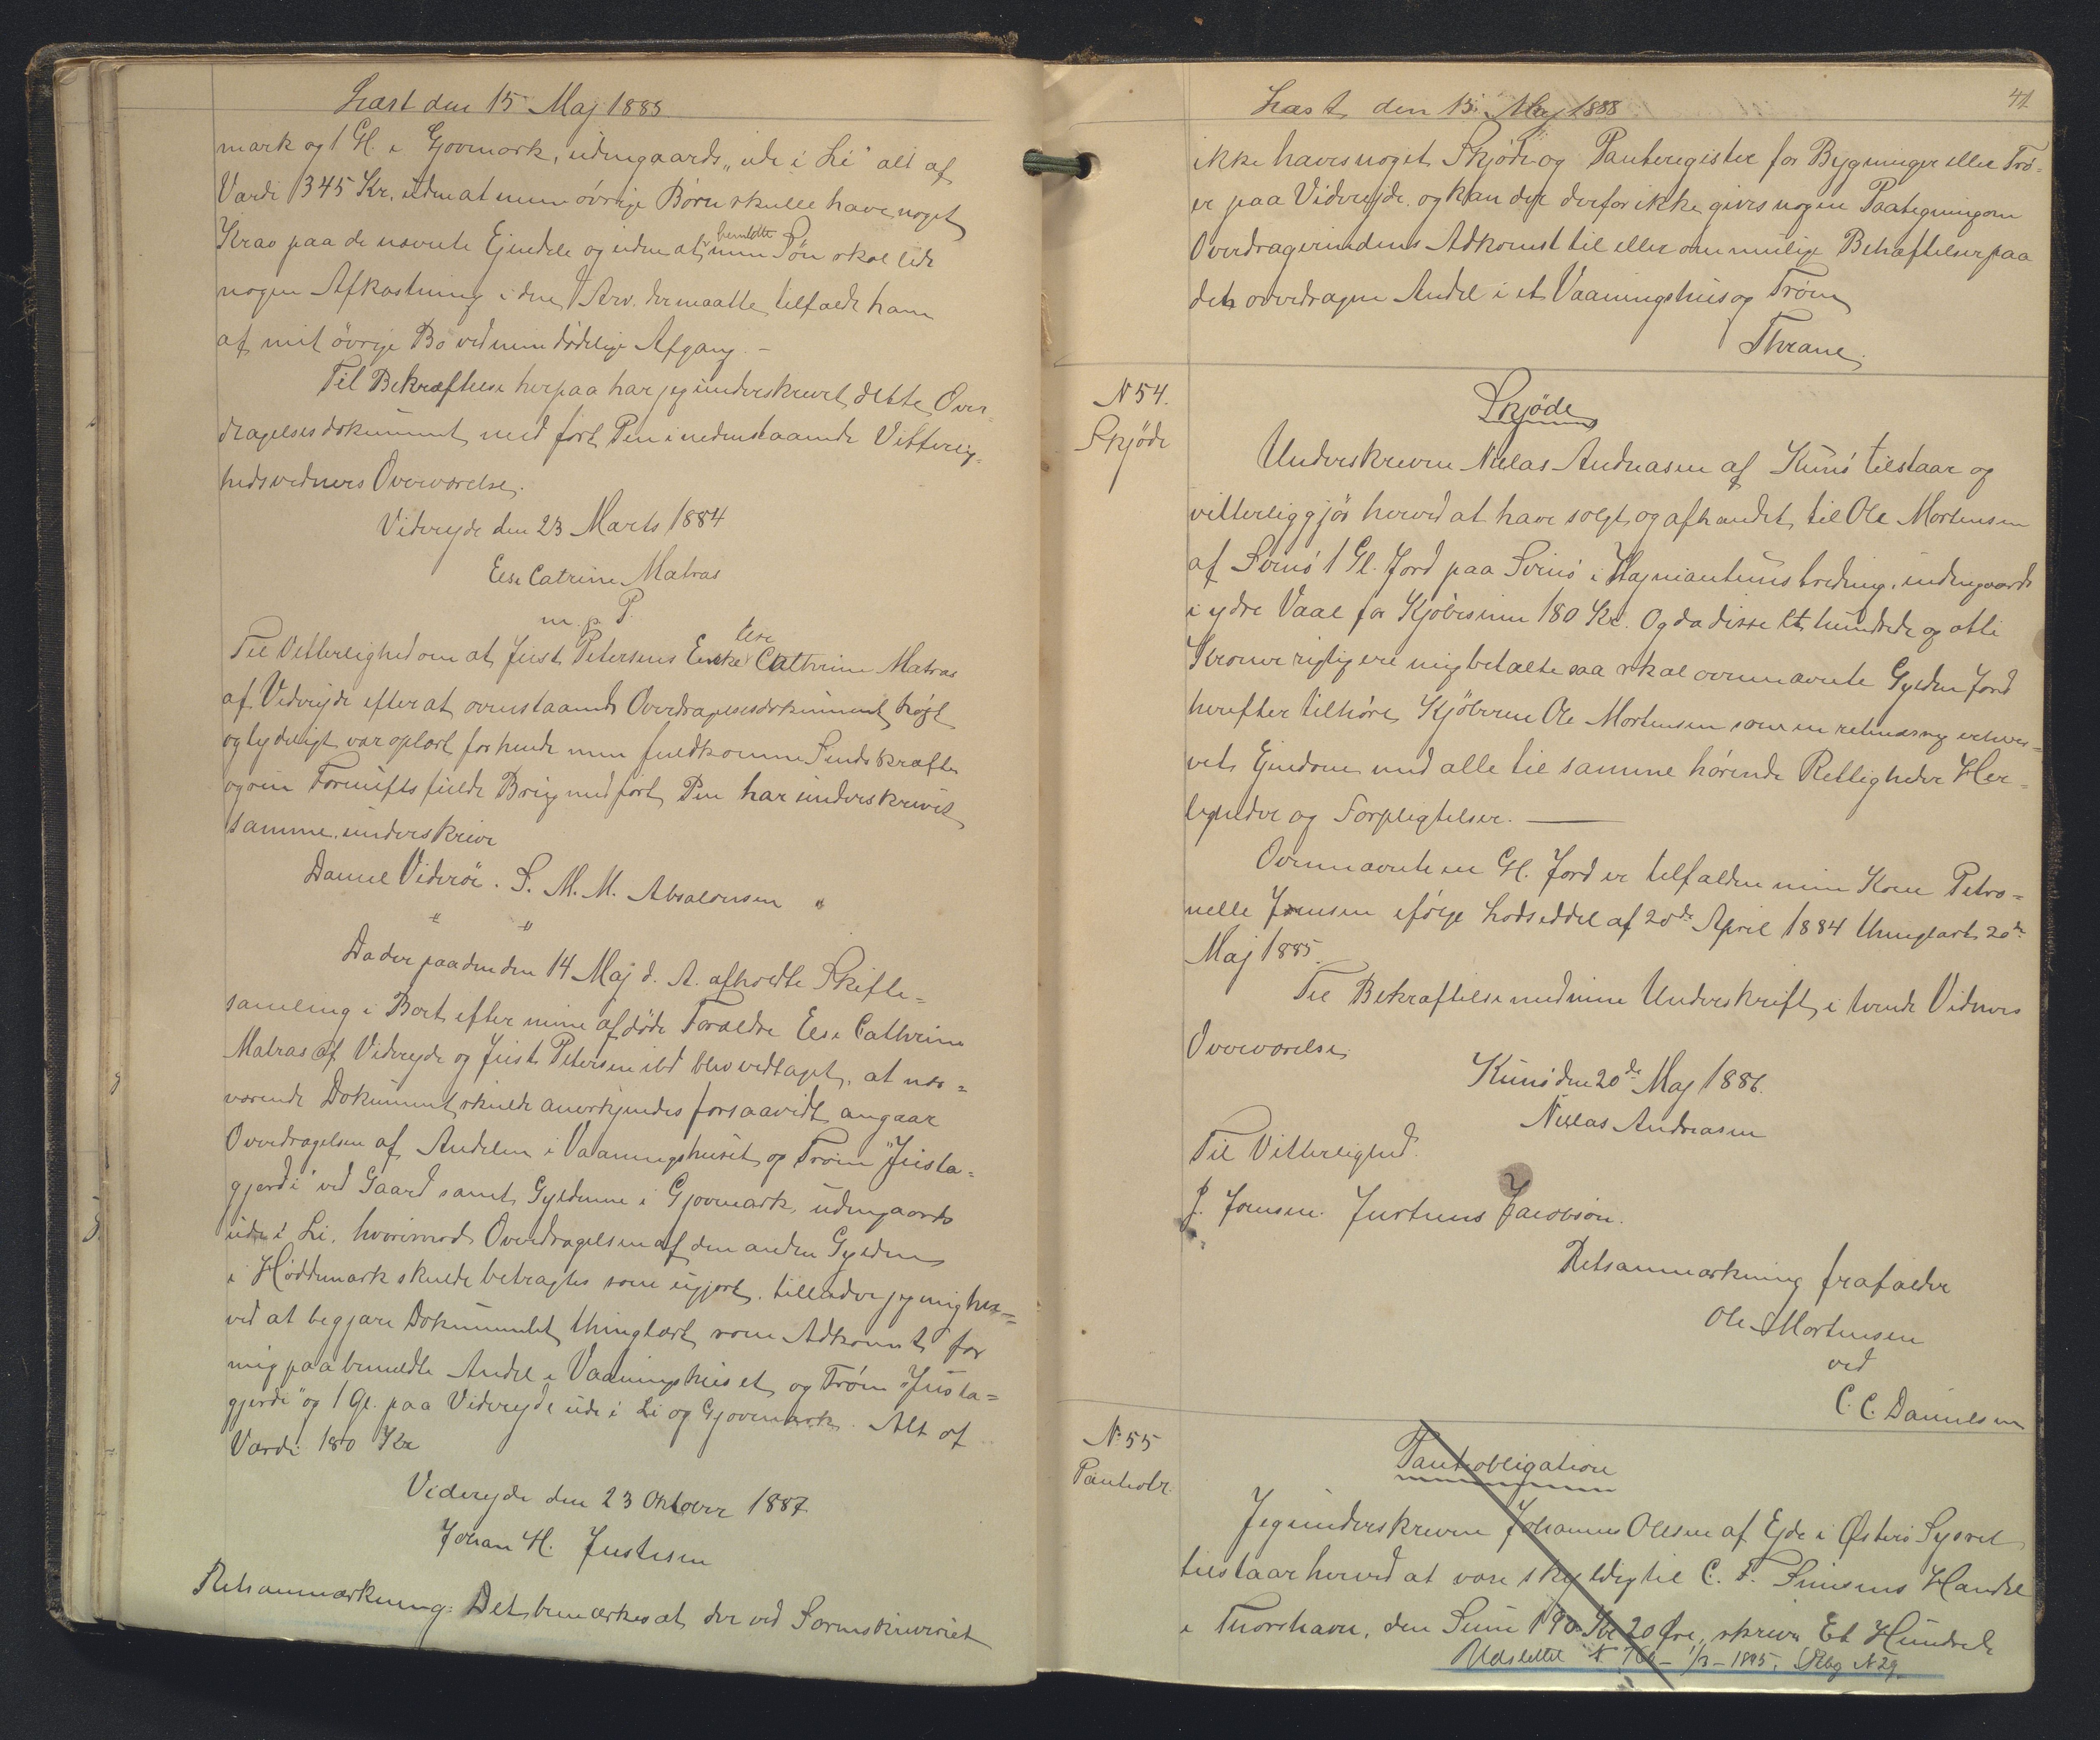 Læst den 15 Maj 1888
mark og 1 Gl. i Gjovmark, udengaards "ude i Li" alt af
Værdi 345 Kr. uden at mine øvrige Børn skulle have noget
Krav paa de nævnte Ejendele og uden at bemeldte min Søn skal lide
nogen Afkastning i den Arv, der maatte tilfalde ham
af mit øvrige Bo ved min dødelige Afgang. –
Til Bekræftelse herpaa har jeg underskrevet dette Over
dragelsesdokument med ført Pen i nedenstaaende Vitterlig=
hedsvidners Overværelse.
Videreyde den 23 Marts 1884
Else Catrine Matras
m. p. P.
Til Vitterlighed om at Just Petersens Enke Else Cathrine Matras
af Videreyde efter at ovenstaaende Overdragelsesdokument højt
og tydeligt var oplæst for hende med fuldkomne Sindskræfter
og sin Fornufts fulde Brug med ført Pen har underskrevet
samme, underskrive
Daniel Viderøe. S. M. M. Absalonsen "
" "
Da der paa den den 14 Maj d. A. afholdte Skifte=
samling i Boet efter mine afdøde Forældre Else Cathrine
Matras af Videreyde og Just Petersen ibd blev vedtaget, at nær=
værende Dokument skulde anerkjendes forsaavidt angaar
Overdragelsen af Andelen i Vaaningshuset og Trøen "Justa=
gjerdi" ved Gaard samt Gyldenne i Gjovmark, udengaards
ude i Li, hvorimod Overdragelsen af den anden Gylden
i Høddemark skulde betragtes som ugjort, tillader jeg mig her=
ved at begjære Dokumentet thinglæst som Adkomst for
mig paa bemeldte Andel i Vaaningshuset og Trøen "Justa=
gjerdi" og 1 Gl. paa Videreyde ude i Li og Gjovmark. Alt af
Værdi 180 Kr
Videreyde den 23 Oktober 1887
Johan H. Justesen
Retsanmærkning: Det bemærkes at der ved Sorenskriveriet
Læst den 15. Maj 1888
41
ikke haves noget Skjøde og Panteregister for Bygninger eller Trø=
er paa Videreyde, og kan der derfor ikke gives nogen Paategning om
Overdragerindens Adkomst til eller om mulige Behæftelser paa
den overdragne Andel i et Vaaningshus og Trøen
Thrane.
N 54.
Skjøde
Skjøde
Underskreven Niclas Andreasen af Kunø tilstaar og
vitterliggjør herved at have solgt og afhændet til Ole Mortensen
af Svinø 1 Gl. Jord paa Svinø i Hagniantunstredung, indengaards
i ydre Vaal for Kjøbesum 180 Kr. Og da disse Et hundrede og otti
Kroner rigtig ere mig betalte saa skal ovennævnte Gylden Jord
herefter tilhøre Kjøberen Ole Mortensen som en retmæssig erhver=
vet Ejendom med alle til samme hørende Rettigheder Her=
ligheder og Forpligtelser. —
Ovennævnte en Gl. Jord er tilfalden min Kone Petro=
nelle Joensen ifølge Lodseddel af 20de April 1884 thinglæst 20de
Maj 1885.
Til Bekræftelse med min Underskrift i tvende Vidners
Overværelse.
Kunø den 20de Maj 1886.
Niclas Andreasen
Til Vitterlighed.
J. Joensen. Justinus Jacobsen.
Retsanmærkning frafalder
Ole Mortensen
ved
C. C. Danielsen
N. 55
Panteobl.
Panteobligation
Jeg underskreven Johannes Olesen af Ejde i Østerø Syssel
tilstaar herved at være skyldig til C. F. Simsens Handel
i Thorshavn, den Sum 190 Kr 20 Øre, skriver Et Hundrede
Udslettet N – 1/3 – 1895. N 29